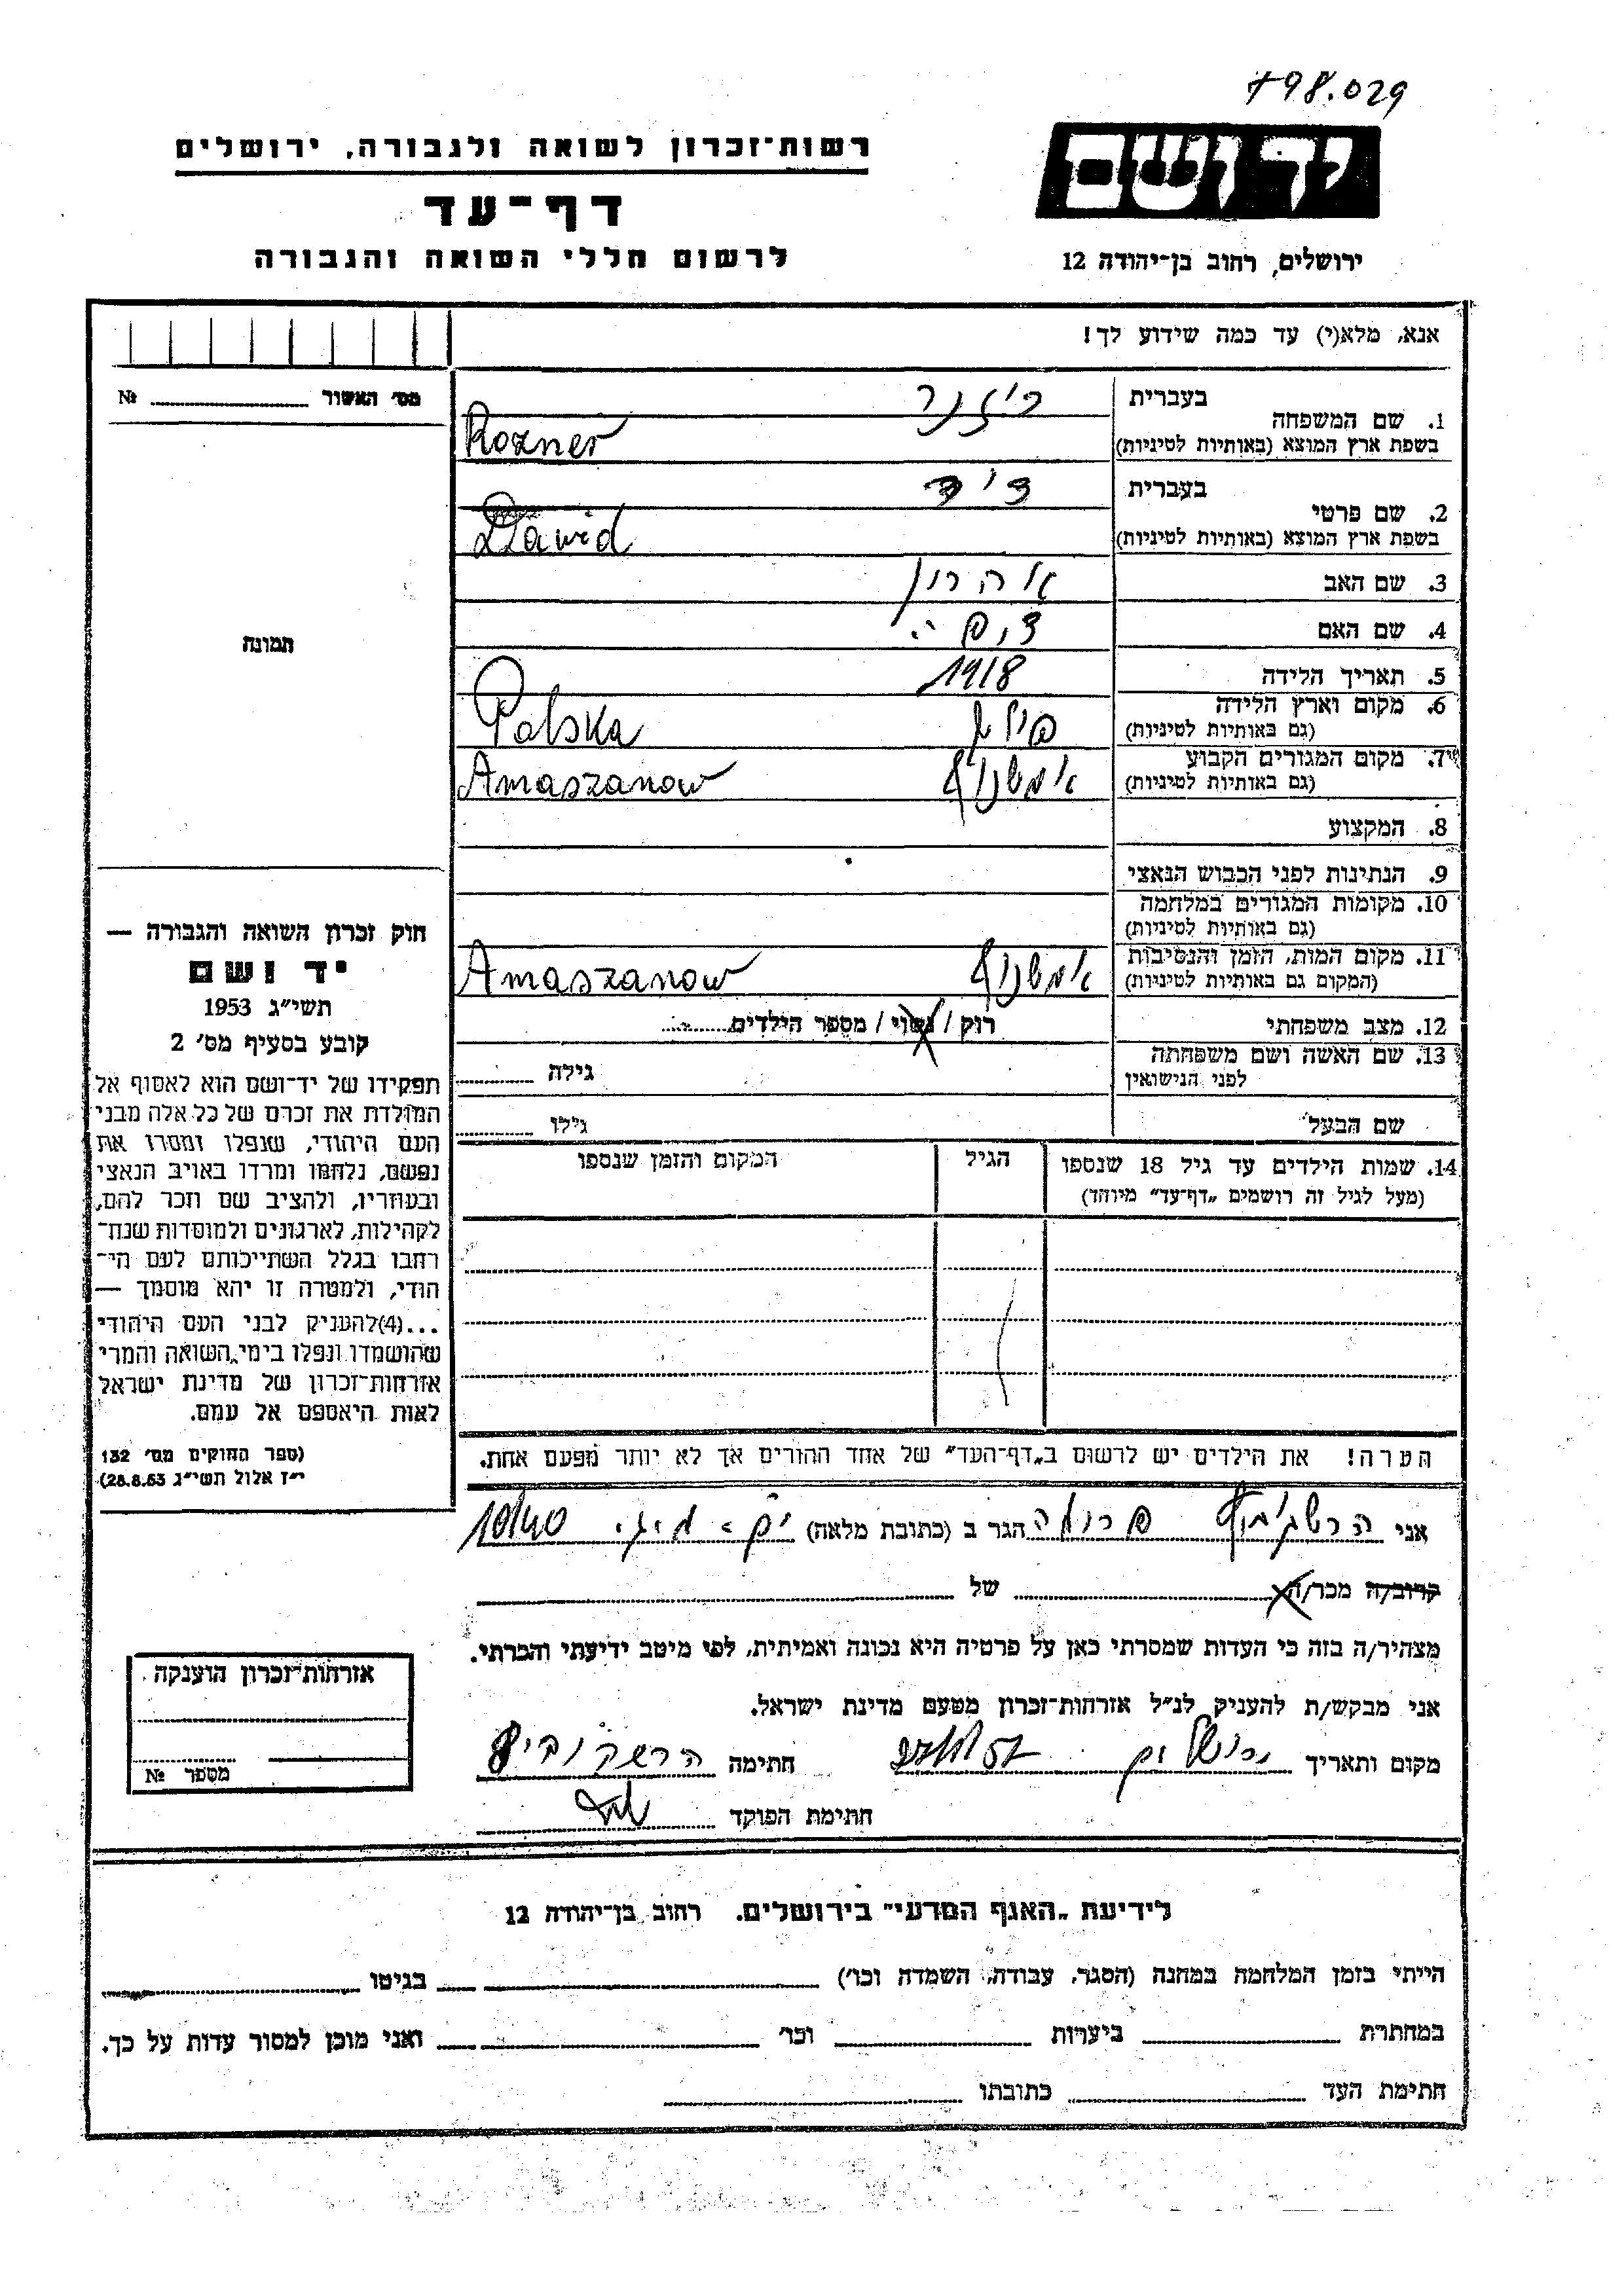 798.029
רשות־זכרון לשואה ולגבורה, ירושלים
דף־עד
לרשום חללי השואה והגבורה
יד ושם
ירושלים, רחוב בן־יהודה 12
אנא, מלא(י) עד כמה שידוע לך!
מס׳ האשור № 
1. שם המשפחה
בעברית רוזנר
בשפת ארץ המוצא (באותיות לטיניות) Rozner
2. שם פרטי
בעברית דוד
בשפת ארץ המוצא (באותיות לטיניות) Dawid
3. שם האב אהרון
4. שם האם
5. תאריך הלידה 1918
6. מקום וארץ הלידה
(גם באותיות לטיניות) פולין Polska
7. מקום המגורים הקבוע
(גם באותיות לטיניות) אמשנוב Amaszanow
8. המקצוע
9. הנתינות לפני הכבוש הנאצי
10. מקומות המגורים במלחמה
(גם באותיות לטיניות)
11. מקום המות, הזמן והנסיבות
(המקום גם באותיות לטיניות) אמשנוב Amaszanow
12. מצב משפחתי רווק / נשוי / מספר הילדים
13. שם האשה ושם משפחתה
לפני הנישואין גילה
שם הבעל גילו
14. שמות הילדים עד גיל 18 שנספו
(מעל לגיל זה רושמים „דף־עד״ מיוחד)
הגיל
המקום והזמן שנספו
תמונה
חוק זכרון השואה והגבורה —
יד ושם
תשי״ג 1953
קובע בסעיף מס׳ 2
תפקידו של יד־ושם הוא לאסוף אל
המולדת את זכרם של כל אלה מבני
העם היהודי, שנפלו ומסרו את
נפשם, נלחמו ומרדו באויב הנאצי
ובעוזריו, ולהציב שם וזכר להם,
לקהילות, לארגונים ולמוסדות שנח־
רבו בגלל השתייכותם לעם הי־
הודי, ולמטרה זו יהא מוסמך —
...(4)להעניק לבני העם היהודי
שהושמדו ונפלו בימי השואה והמרי
אזרחות־זכרון של מדינת ישראל
לאות היאספם אל עמם.
(ספר החוקים מס׳ 132
י״ז אלול תשי״ג 28.8.53)
הערה! את הילדים יש לרשום ב„דף־העד״ של אחד ההורים אך לא יותר מפעם אחת.
אני הרשקוביץ הגר ב (כתובת מלאה)
קרוב/ה מכר/ה של
מצהיר/ה בזה כי העדות שמסרתי כאן על פרטיה היא נכונה ואמיתית, לפי מיטב ידיעתי והכרתי.
אני מבקש/ת להעניק לנ״ל אזרחות־זכרון מטעם מדינת ישראל.
מקום ותאריך ירושלים חתימה הרשקוביץ
חתימת הפוקד
אזרחות־זכרון הוענקה
מספר №
לידיעת „האגף המדעי״ בירושלים. רחוב בן־יהודה 12
הייתי בזמן המלחמה במחנה (הסגר, עבודה, השמדה וכו׳) בגיטו
במחתרת ביערות וכו׳ ואני מוכן למסור עדות על כך.
חתימת העד כתובתו